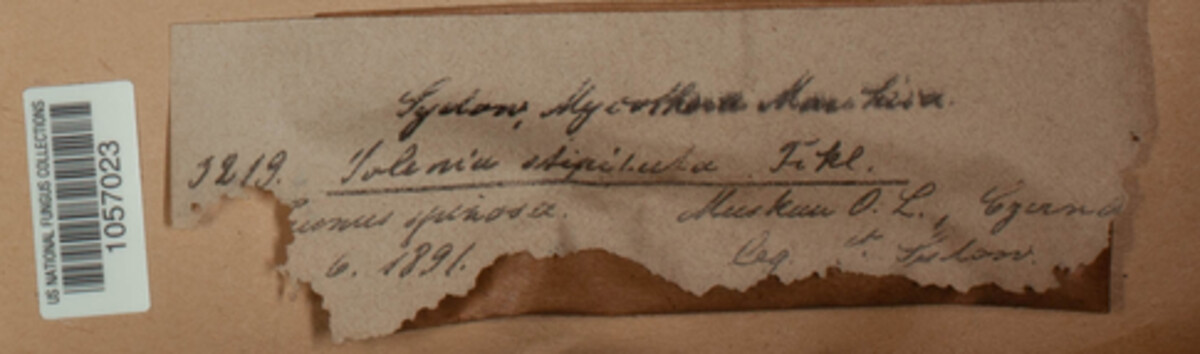 US NATIONAL FUNGUS COLLECTIONS
1057023
Sydow, Mycotheca Marchica.
3219. Solenia stipitata Fckl.
spinosa. Muskau O. L.,
6. 1891. leg. Sydow.